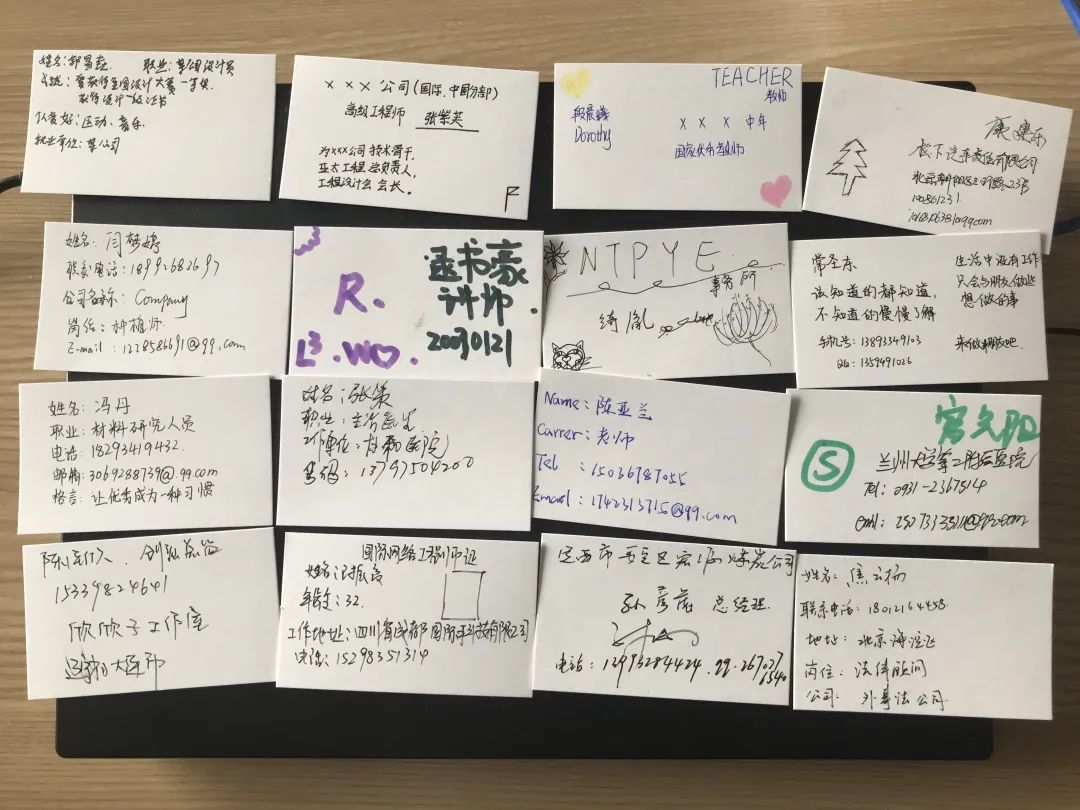 姓名：郭昌垚 职业：某公司设计员
成绩：曾获得全国设计大赛一等奖
获得设计一级证书
个人爱好：运动、音乐
就业单位：某公司
×××公司（国际.中国分部）
高级工程师 张紫英
为×××公司技术骨干，
亚太工程总负责人，
工程设计会会长。
TEACHER
教师
段晨曦
Dorothy
× × × 中学
国家优秀教师
康建乐
松下汽车责任有限公司
100861231
姓名：闫梦婷
联系电话：18992682697
公司名称：Company
岗位：种植师
E-mail：1228586691@qq.com
R.
L³.WO.
孟书豪
讲师.
20090121
NTPYE
事务所
绮胤
常圣东
该知道的都知道，
不知道的慢慢了解
手机号：13893349103
QQ：1359491026
生活中没有工作
只会与朋友做些
想做的事
来做朋友吧
姓名：冯丹
职业：材料研究人员
电话：18293419432
邮箱：3069288739@.qq.com
格言：让优秀成为一种习惯
姓名：冯张策
职业：主治医生
工作单位：
号码：13797504200
Name：陈亚兰
Carrer：老师
Tel：15036787055
Email：1742313715@qq.com
S
兰州大学第二附属医院
Tel：0931-2367514
创始总监
15339824641
欣欣子工作室
国际网络工程师证
年龄：32.
工作地址：四川省成都国际科技有限公司
电话：15298351314
定西市安定区宏源煤炭公司
孙彦薇 总经理.
姓名：焦云杨
联系电话：18012164458.
地址：北京海淀区
岗位：法律顾问
公司：外事法公司.